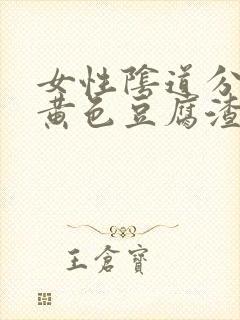 女性陰道分
黄色豆腐渣
王倉寶